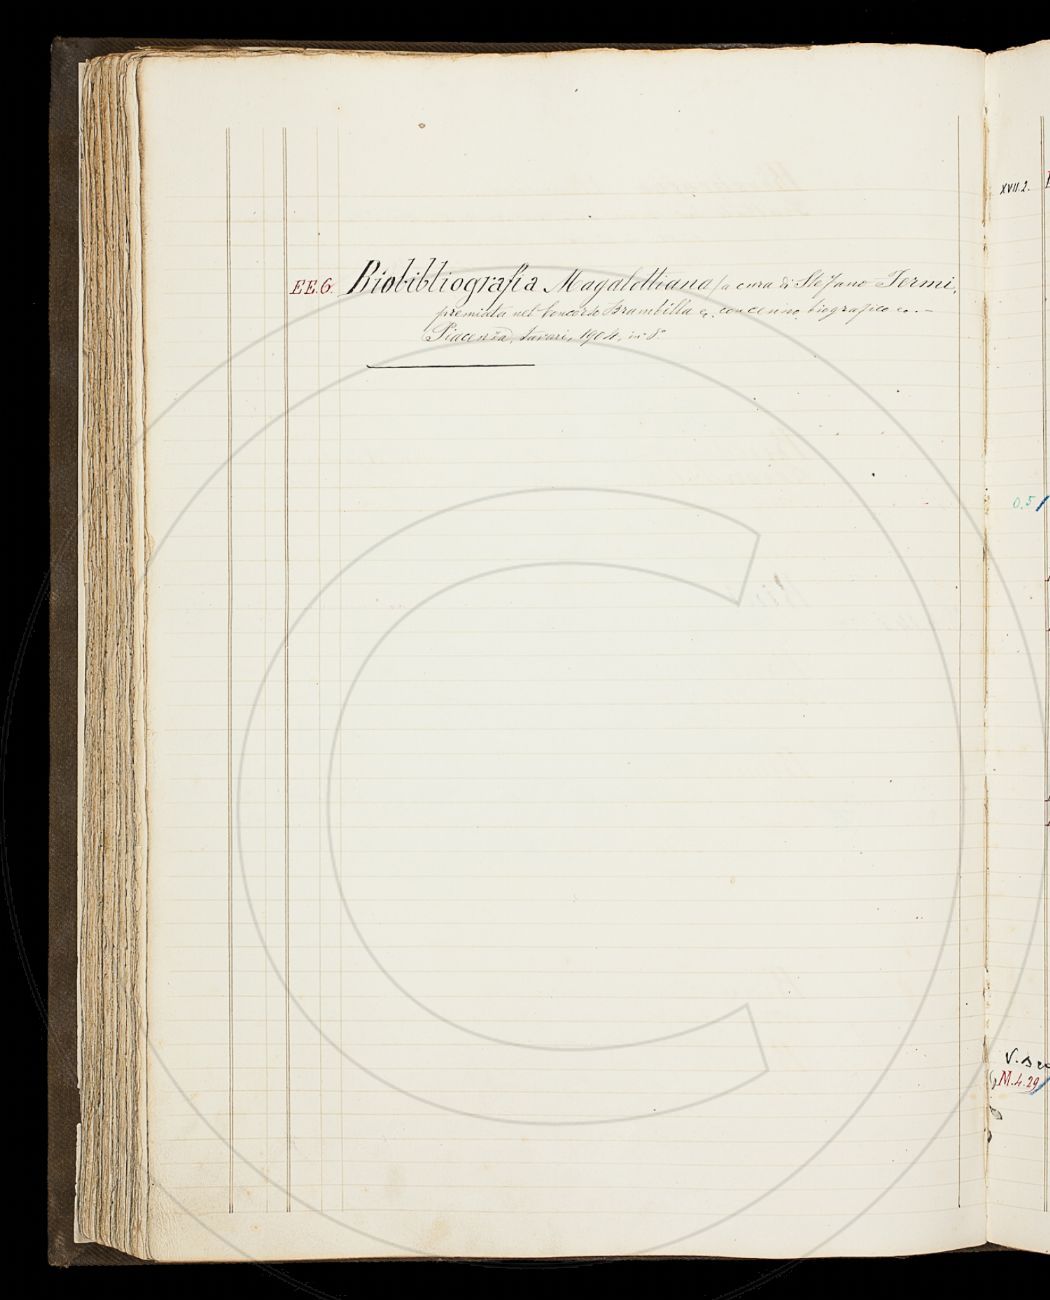 EE.6. Biobibliografia Magalottiana (a cura di Stefano Fermi,
premiata nel Concorso Brambilla e. con cenno biografico ec. —
Piacenza, Favari, 1904, in 8°
XVII.2.
0.5
V.
M.4.29